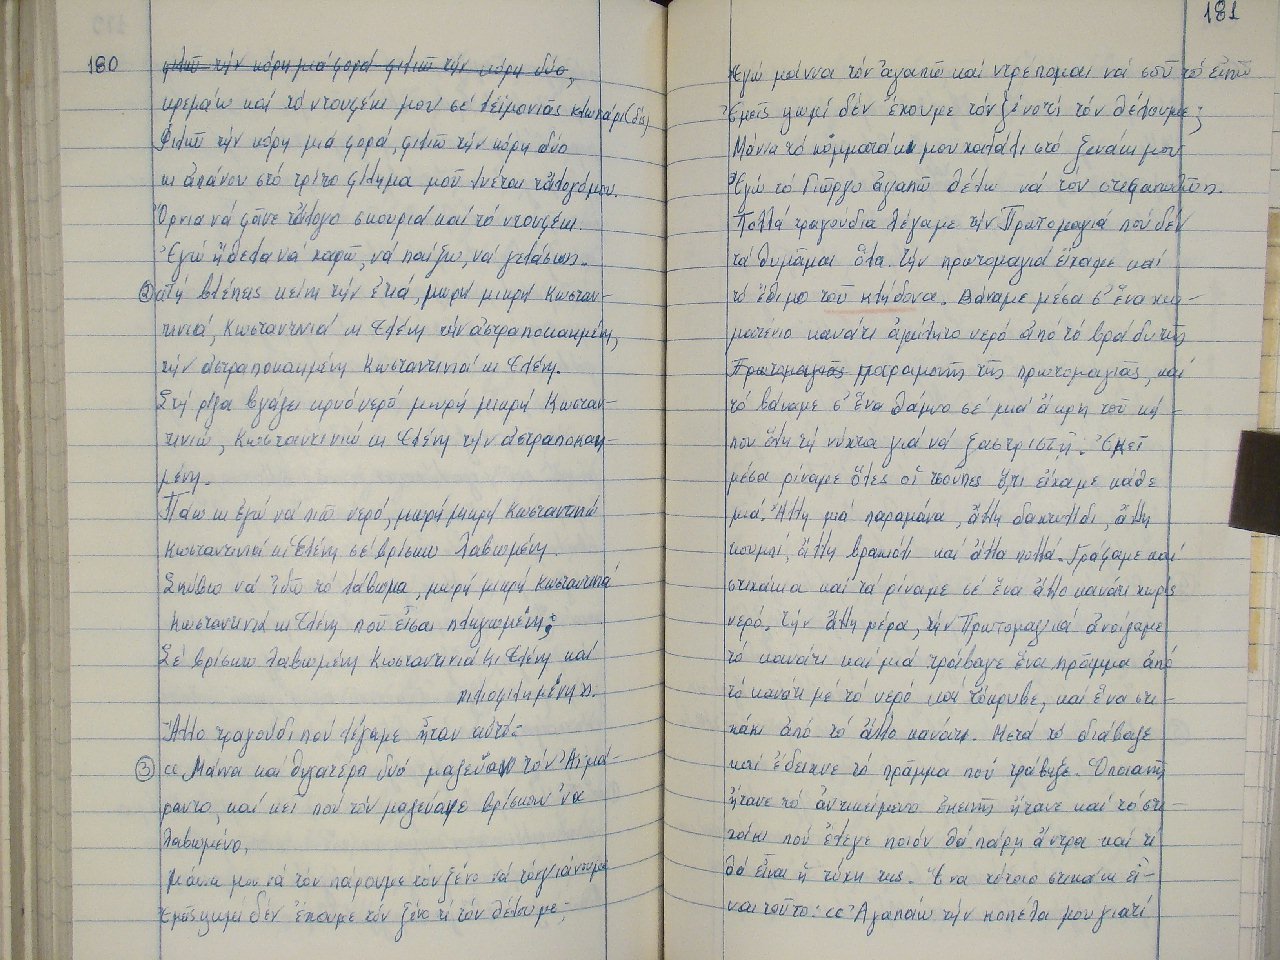 180
φιλῶ τήν κόρη μιά φορά φιλῶ τήν κόρη δύο,
κρεμάω καί τό ντουφέκι μου σέ λεϊμονιᾶς κλωνάρι (δίς)
Φιλῶ τήν κόρη μιά φορά, φιλῶ τήν κόρη δύο
κι ἀπάνου στό τρίτο φίλημα μοῦ λυέται τἄλογό μου.
Ὄρνια νά φᾶνε τἄλογο σκουριά καί τό ντουφέκι.
Ἐγώ ἤθελα νά χαρῶ, νά παίξω, νά γελάσω».
② «Τή βλέπεις κείνη τήν ἐλιά, μικρή μικρή Κωσταν-
τινιά, Κωσταντινιά κι Ἑλένη τήν ἀστραποκαμμένη,
τήν ἀστραποκαμμένη Κωσταντινιά κι Ἑλένη.
Στή ρίζα βγάζει κρυό νερό μικρή μικρή Κωσταν-
τινιώ, Κωσταντινιώ κι Ἑλένη τήν ἀστραποκαμ-
μένη.
Πάω κι ἐγώ νά πιῶ νερό, μικρή μικρή Κωσταντινιά
Κωσταντινιά κι Ἑλένη σέ βρίσκω λαβωμένη.
Σκύβω νά ἰδῶ τό λάβωμα, μικρή μικρή Κωσταντινιά
Κωσταντινιά κι Ἑλένη πού εἶσαι πληγωμένη;
Σέ βρίσκω λαβωμένη Κωσταντινιά κι Ἑλένη καί
γλυκοφιλημένη».
Ἄλλο τραγούδι πού λέγαμε ἦταν αὐτό:
③ «Μάνα καί θυγατέρα δυό μαζεύαν τόν Ἀμά-
ραντο, καί κεί πού τόν μαζεύαγε βρίσκουν ἕνα
λαβωμένο.
Μάνα μου νά τόν πάρουμε τόν ξένο νά τόν γιάνουμε
Ἐμεῖς ψωμί δέν ἔχουμε τόν ξένο τί τόν θέλουμε;
181
Ἐγώ μάννα τόν ἀγαπῶ καί ντρέπομαι νά σοῦ τό εἰπῶ
Ἐμεῖς ψωμί δέν ἔχουμε τόν ξένο τί τόν θέλουμε;
Μάνα τό κομματάκι μου χαλάλι στό ξενάκι μου
Ἐγώ τό Γιῶργο ἀγαπῶ θέλω νά τόν στεφανωθῶ».
Πολλά τραγούδια λέγαμε τήν Πρωτομαγιά πού δέν
τά θυμᾶμαι ὅλα. Τήν πρωτομαγιά εἴχαμε καί
τό ἔθιμο τοῦ Κλήδονα. Βάναμε μέσα σ' ἕνα χω-
ματένιο κανάτι ἀμίλητο νερό ἀπό τό βράδυ τῆς
Πρωτομαγιᾶς παραμονῆς τῆς πρωτομαγιᾶς, καί
τό βάναμε σ' ἕνα θάμνο σέ μιά ἄκρη τοῦ κή-
που ὅλη τή νύχτα γιά νά ξαστριστῆ. Ἐκεῖ
μέσα ρίναμε ὅλες οἱ τσούπες ὅ,τι εἴχαμε κάθε
μιά. Ἄλλη μιά παραμάνα, ἄλλη δακτυλίδι, ἄλλη
κουμπί, ἄλλη βραχιόλι καί ἄλλα πολλά. Γράφαμε καί
στιχάκια καί τά ρίναμε σέ ἕνα ἄλλο κανάτι χωρίς
νερό. Τήν ἄλλη μέρα, τήν Πρωτομαγιά ἀνοίγαμε
τό κανάτι καί μιά τράβαγε ἕνα πρᾶμμα ἀπό
τό κανάτι μέ τό νερό καί τὄκρυβε, καί ἕνα στι-
χάκι ἀπό τό ἄλλο κανάτι. Μετά τό διάβαζε
καί ἔδειχνε τό πρᾶμμα πού τράβηξε. Ὁποιανῆς
ἤτανε τό ἀντικείμενο ἐκεινῆς ἤτανε καί τό στι-
χάκι πού ἔλεγε ποιόν θά πάρη ἄντρα καί τί
θά εἶναι ἡ τύχη της. Ἕνα τέτοιο στιχάκι εἶ-
ναι τοῦτο: «Ἀγαπάω τήν κοπέλα μου γιατί